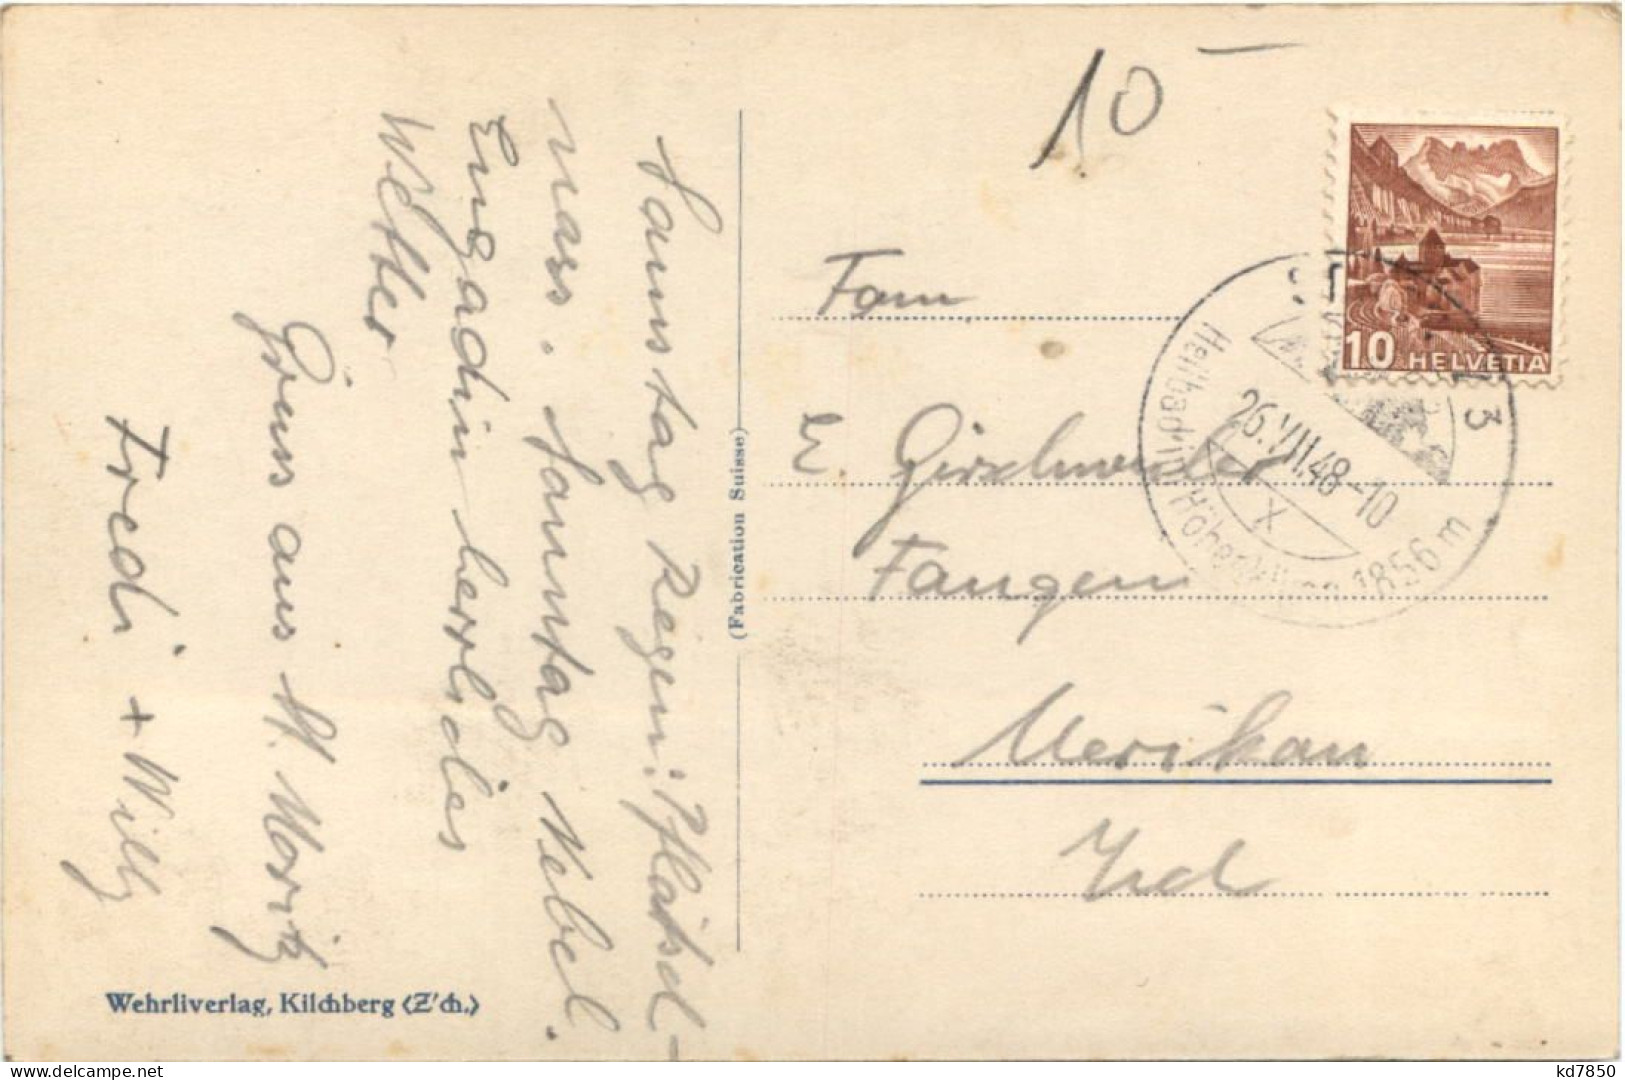 Samstag Regen: Pflatsch-
nass. Sonntag Nebel.
Engadin herrliches
Wetter
Gruss aus St. Moritz
Fredi + Willy
Wehrliverlag, Kilchberg (Z'ch.)
(Fabrication Suisse)
10 –
10 HELVETIA
ST.
3
26.VII.48-10
X
Heilbad in Höhenklima 1856 m
Fam
Girschweiler
Fangen
Uerikon
Zch
kd7850